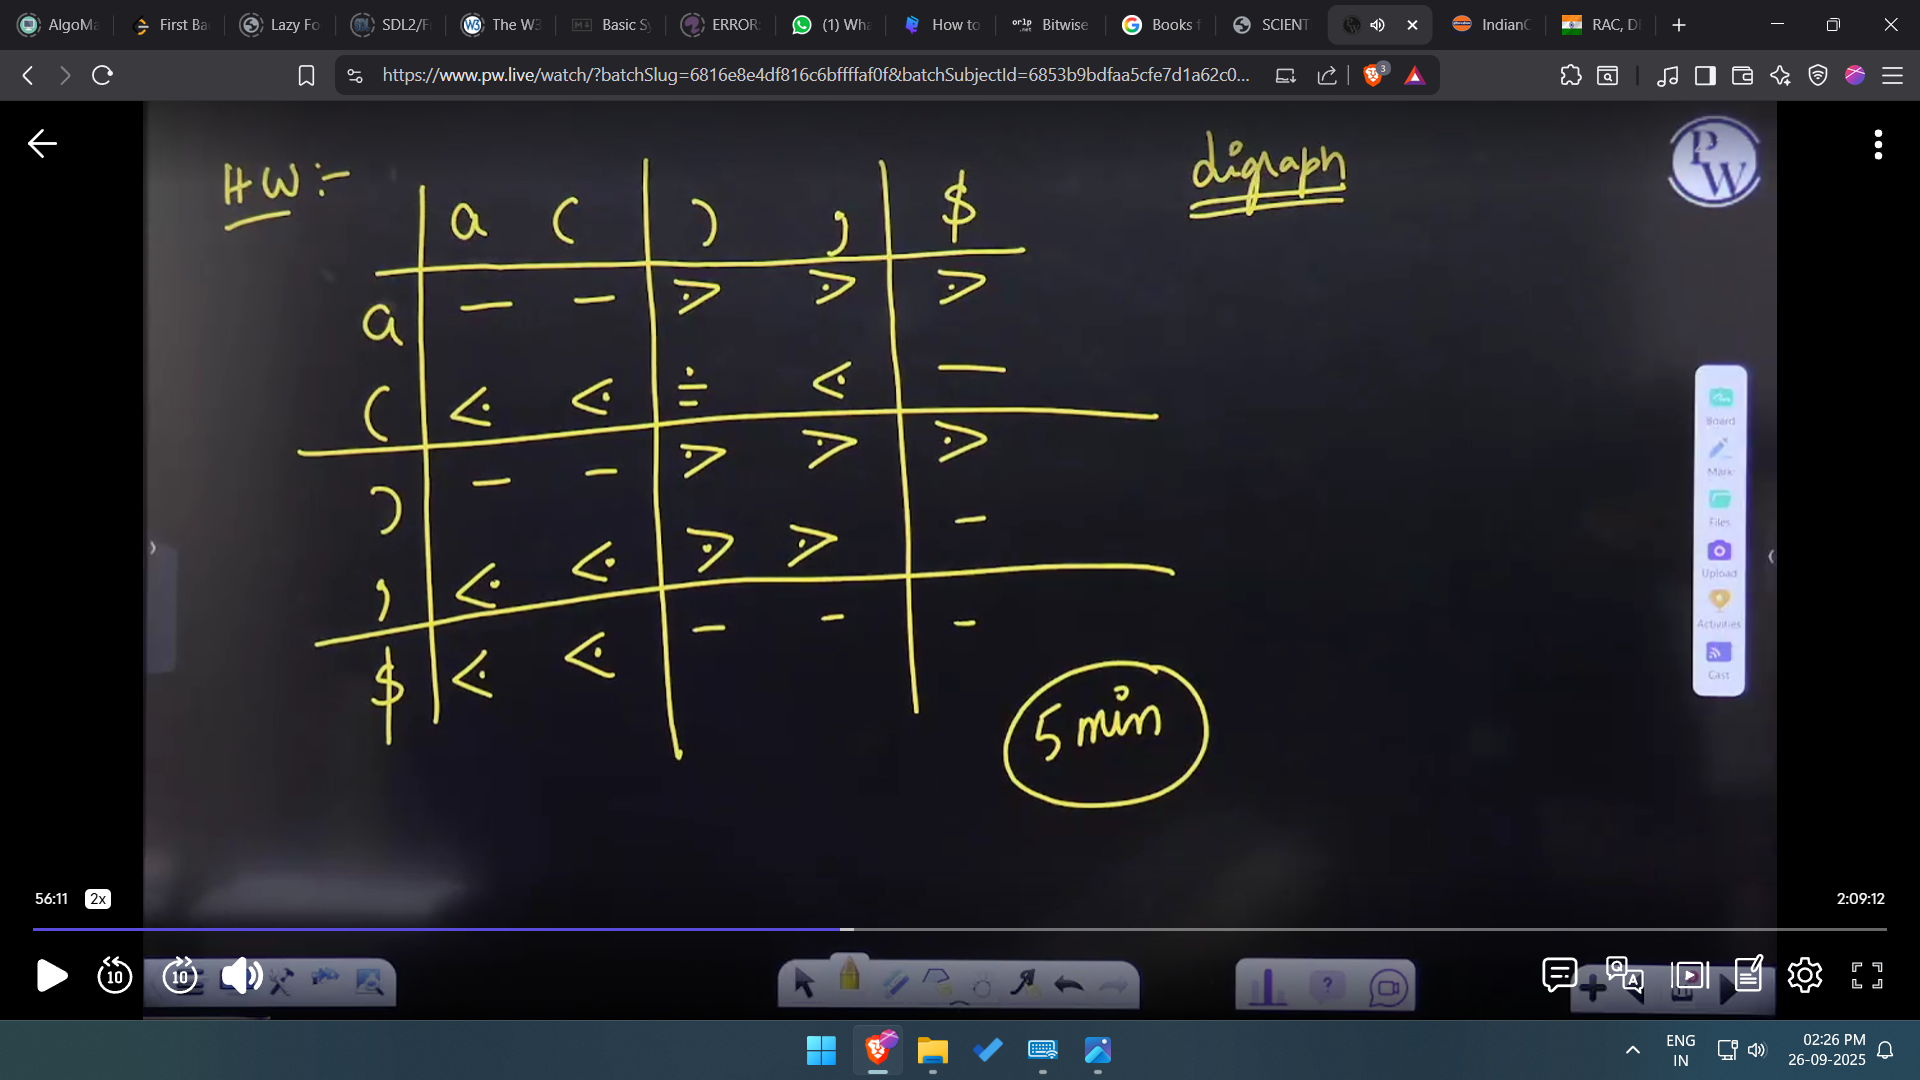 AlgoMa
First Ba
Lazy Fo
SDL2/F
The W3
Basic Sy
ERROR:
(1) Wha
How to
orlp .net Bitwise
Books f
SCIENT
IndianC
RAC, DI
https://www.pw.live/watch/?batchSlug=6816e8e4df816c6bffffaf0f&batchSubjectId=6853b9bdfaa5cfe7d1a62c0...
3
HW :-
digraph
PW
a ( ) , $
a - - ⋗ ⋗ ⋗
( ⋖ ⋖ ≐ ⋖ -
) - - ⋗ ⋗ ⋗
, ⋖ ⋖ ⋗ ⋗ -
$ ⋖ ⋖ - - -
5 min
Board
Mark
Files
Upload
Activities
Cast
56:11 2x
2:09:12
10
10
ENG
IN
02:26 PM
26-09-2025